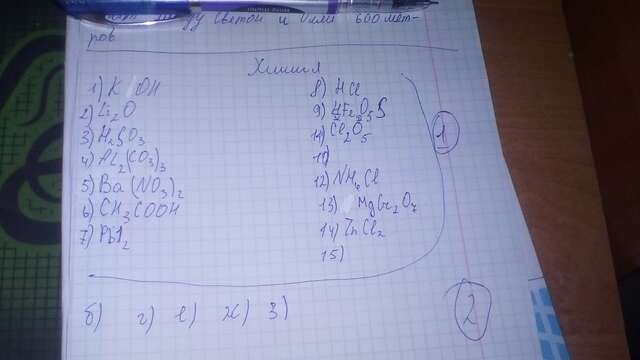 ду Светой и Оли 600 мет-
ров
Химия
1) K OH
2) Li₂O
3) H₂SO₃
4) Al₂(CO₃)₃
5) Ba(NO₃)₂
6) CH₃COOH
7) PbI₂
8) HCl
9)
11) Cl₂O₅
10)
12) NH₄Cl
13)
14) ZnCl₂
15)
1
б) г) е) ж) з)
2